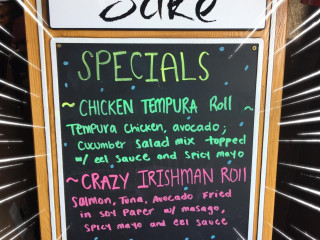 Sake
SPECIALS
~ CHICKEN TEMPURA Roll ~
Tempura chicken, avocado,
cucumber salad mix topped
w/ eel sauce and spicy mayo
~ CRAZY IRISHMAN Roll
Salmon, Tuna, Avocado fried
in soy paper w/ masago,
spicy mayo and eel sauce